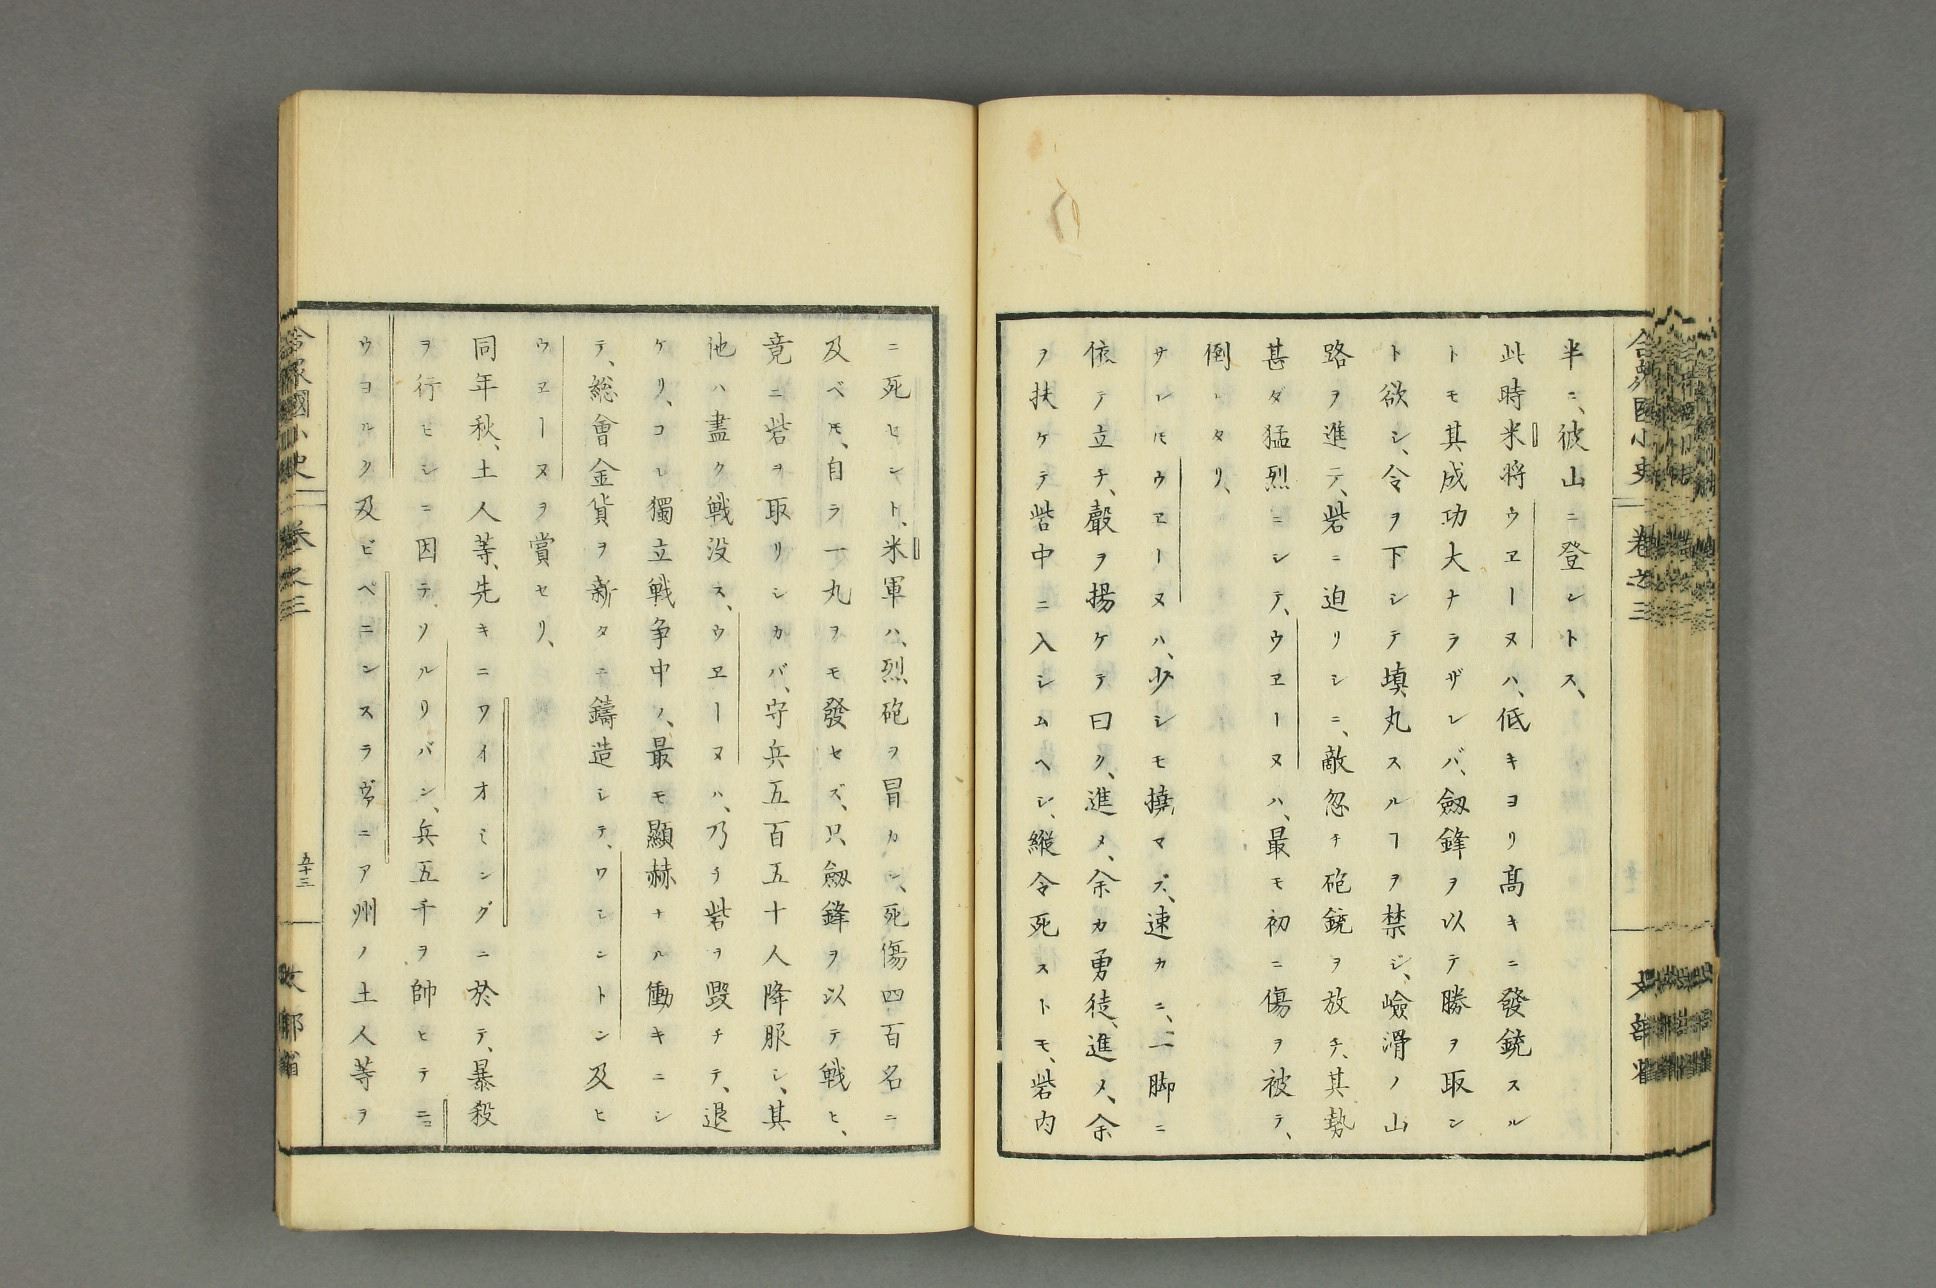 合衆國小史 卷之三 文部省
半ニ、彼山ニ登ントス、
此時米將ウヱーヌハ、低キヨリ高キニ發銃スル
トモ其成功大ナラザレバ、劔鋒ヲ以テ勝ヲ取ン
ト欲シ、令ヲ下シテ填丸スルヿヲ禁ジ、嶮滑ノ山
路ヲ進テ、砦ニ迫リシニ、敵忽チ砲銃ヲ放チ、其勢
甚ダ猛烈ニシテ、ウヱーヌハ、最モ初ニ傷ヲ被テ、
倒レタリ、
サレ𪜈ウヱーヌハ、少シモ撓マズ、速カニ、一脚ニ
依テ立チ、聲ヲ揚ケテ曰ク、進メ、余カ勇徒、進メ、余
ヲ扶ケテ砦中ニ入シムヘシ、縱令死ストモ、砦内
ニ死セント、米軍ハ、烈砲ヲ冒カシ、死傷四百名ニ
及ベ𪜈、自ラ一丸ヲモ發セズ、只劔鋒ヲ以テ戰ヒ、
竟ニ砦ヲ取リシカバ、守兵五百五十人降服シ、其
他ハ盡ク戰没ス、ウヱーヌハ、乃チ砦ヲ毀チテ、退
ケリ、コレ獨立戰争中ノ、最モ顯赫ナル働キニシ
テ、総會金貨ヲ新タニ鑄造シテ、ワシントン及ヒ
ウヱーヌヲ賞セリ、
同年秋、土人等、先キニワイオミングニ於テ、暴殺
ヲ行ヒシニ因テ、ソルリバン、兵五千ヲ帥ヒテニュ
ウヨルク及ビペニンスラヴァニア州ノ土人等ヲ
合衆國小史 卷之三 五十三 文部省